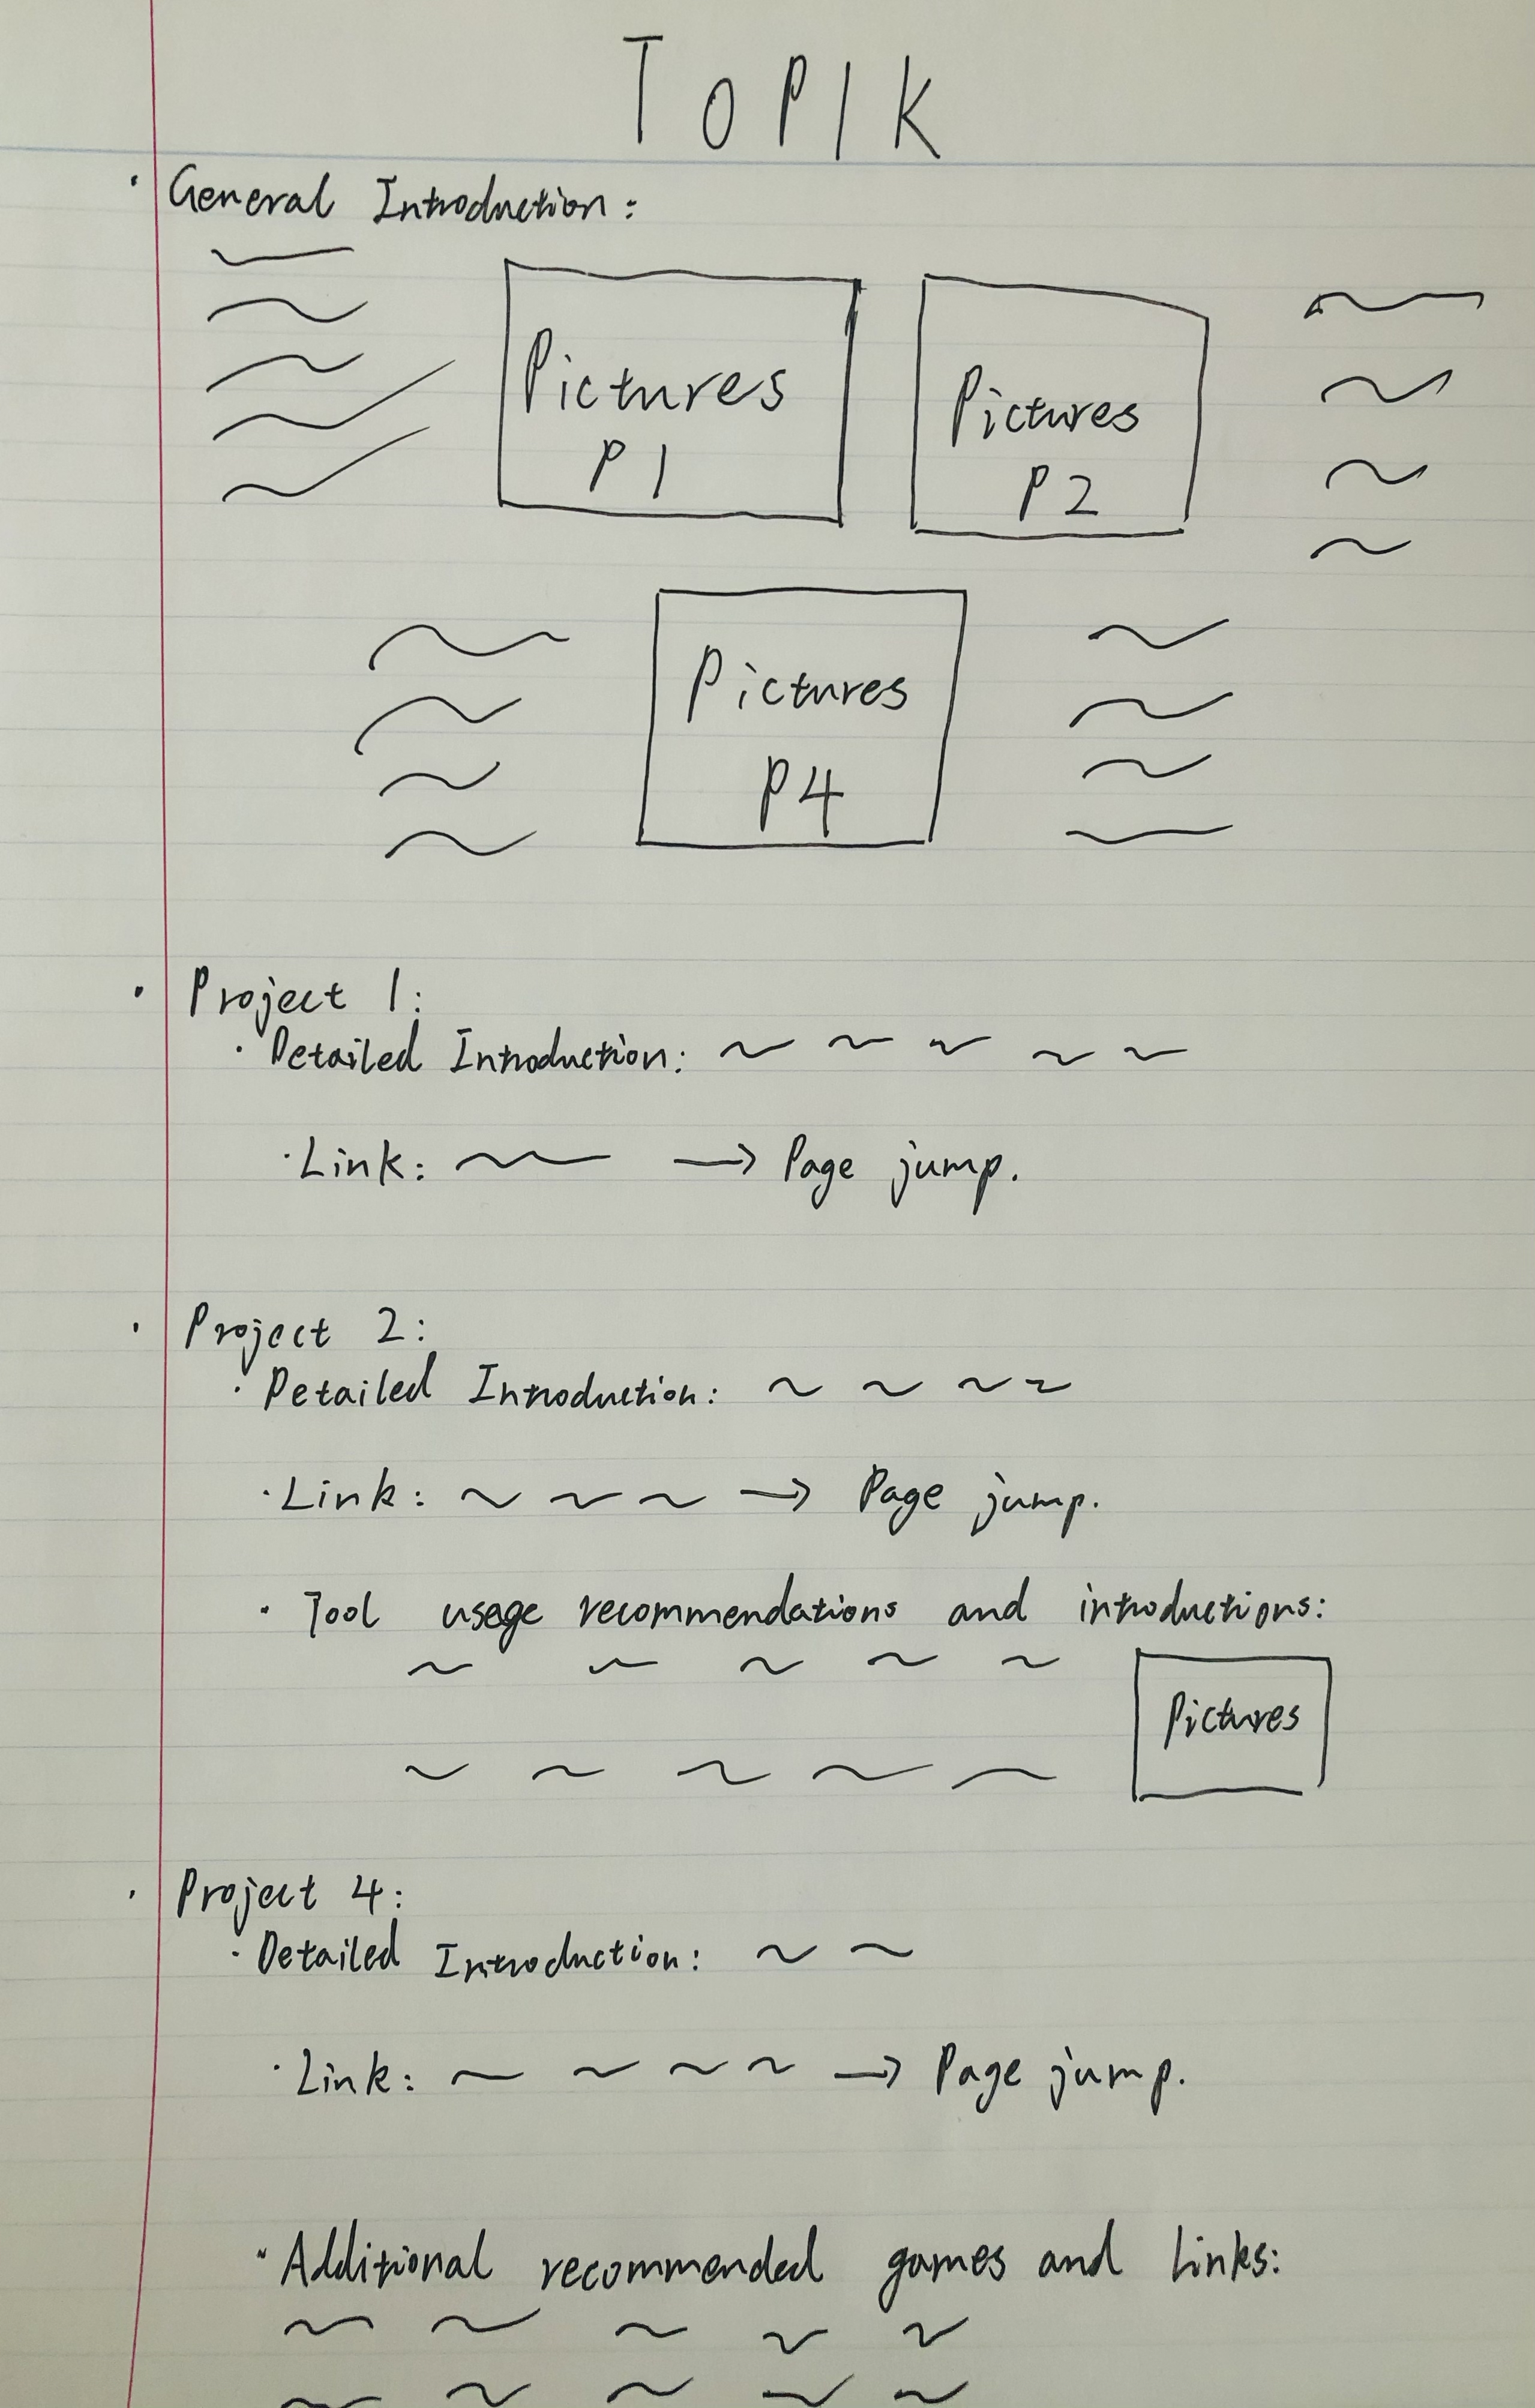 TOPIK
· General Introduction:
Pictures
P1
Pictures
P2
Pictures
P4
· Project 1:
· Detailed Introduction:
· Link: → Page jump.
· Project 2:
· Detailed Introduction:
· Link: → Page jump.
· Tool usage recommendations and introductions:
Pictures
· Project 4:
· Detailed Introduction:
· Link: → Page jump.
· Additional recommended games and links: